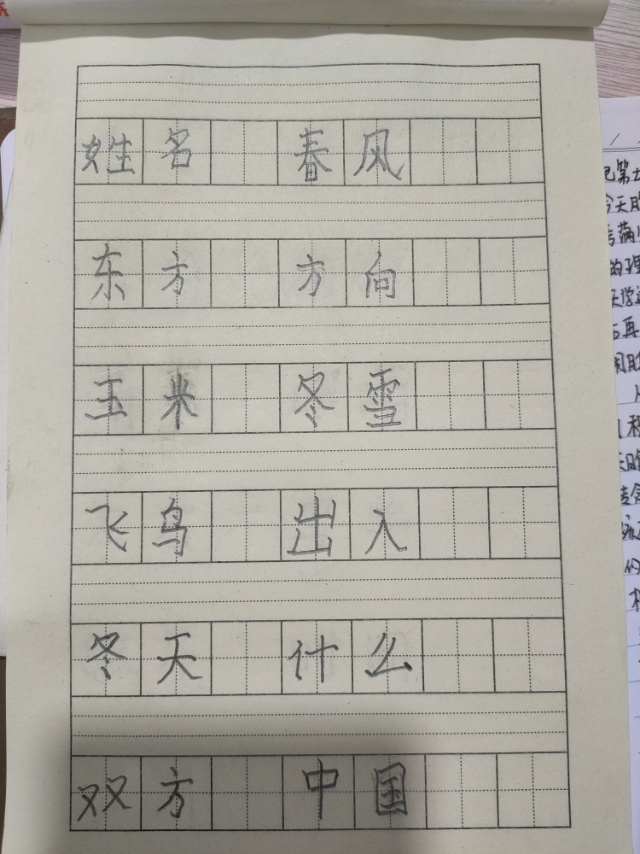 姓名 春风
东方 方向
玉米 冬雪
飞鸟 出入
冬天 什么
双方 中国